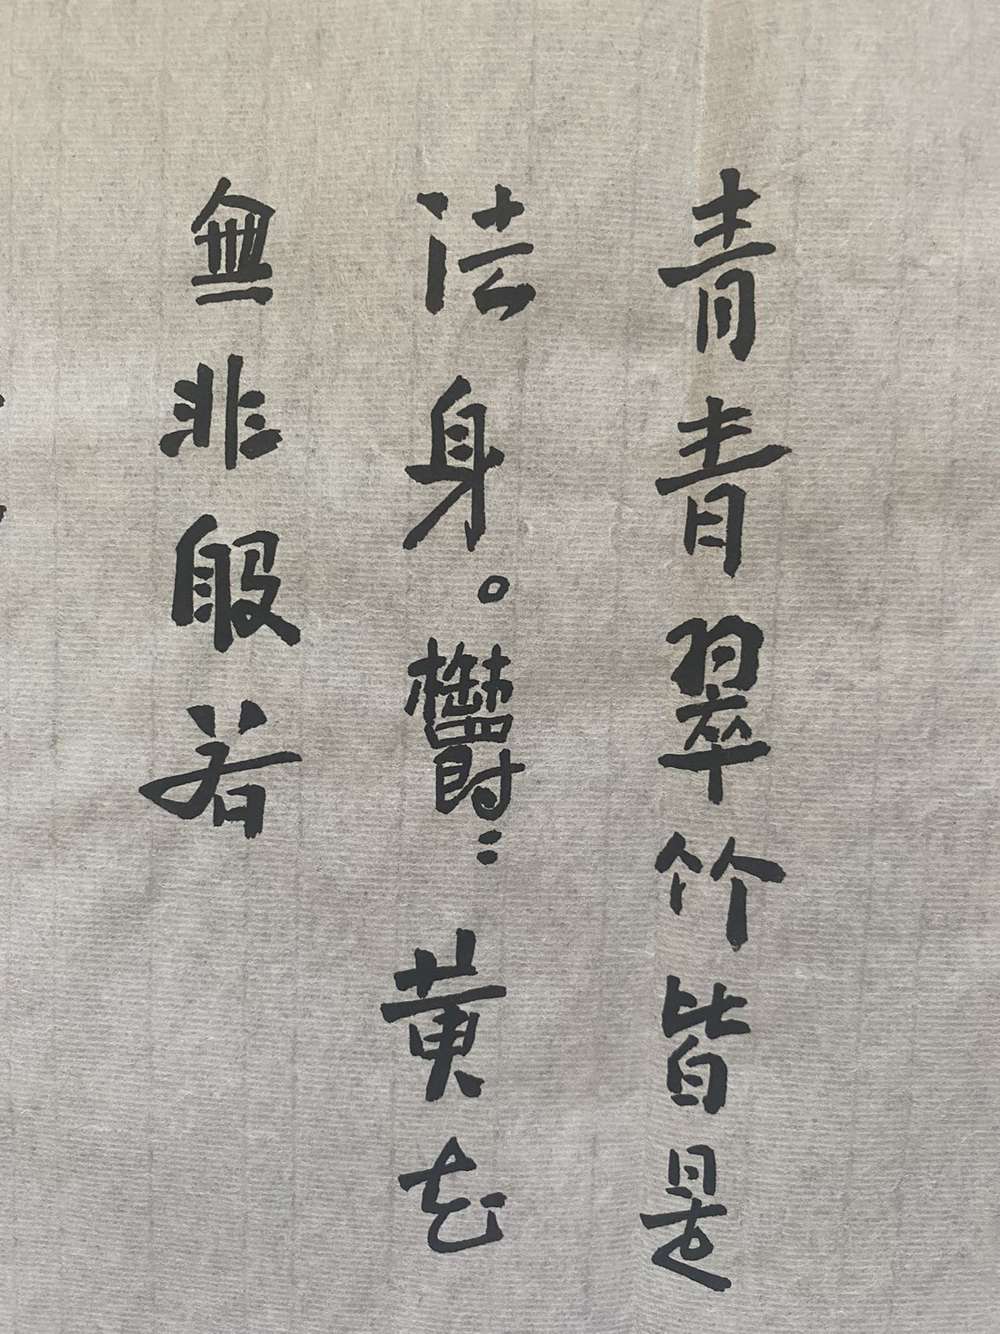 青青翠竹皆是
法身。鬱〻黄花
無非般若